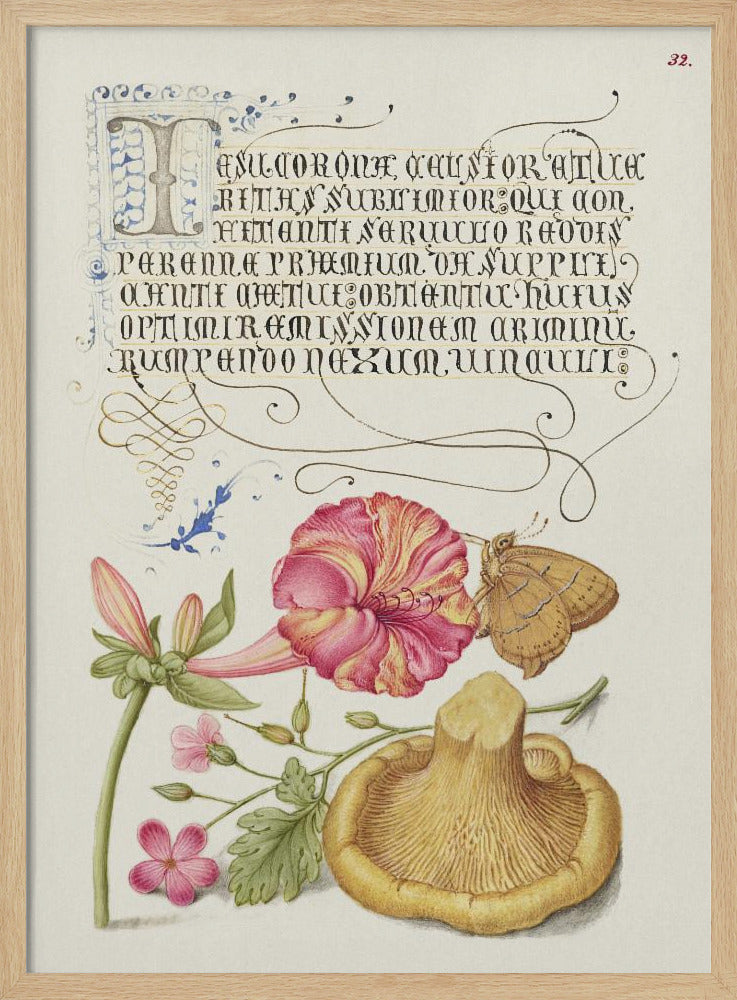 32.
IESU.CORONA, CELSIOR ET UE
RITAS SUBLIMIOR: QUI CON,
FITENTI SERUULO REDDIS
PERENNE PRÆMIUM. DA SUPPLI,
CANTI CÆTUI: OBTENTU HUIUS
OPTIMI REMISSIONEM CRIMINU.
RUMPENDO NEXUM, UINCULI: